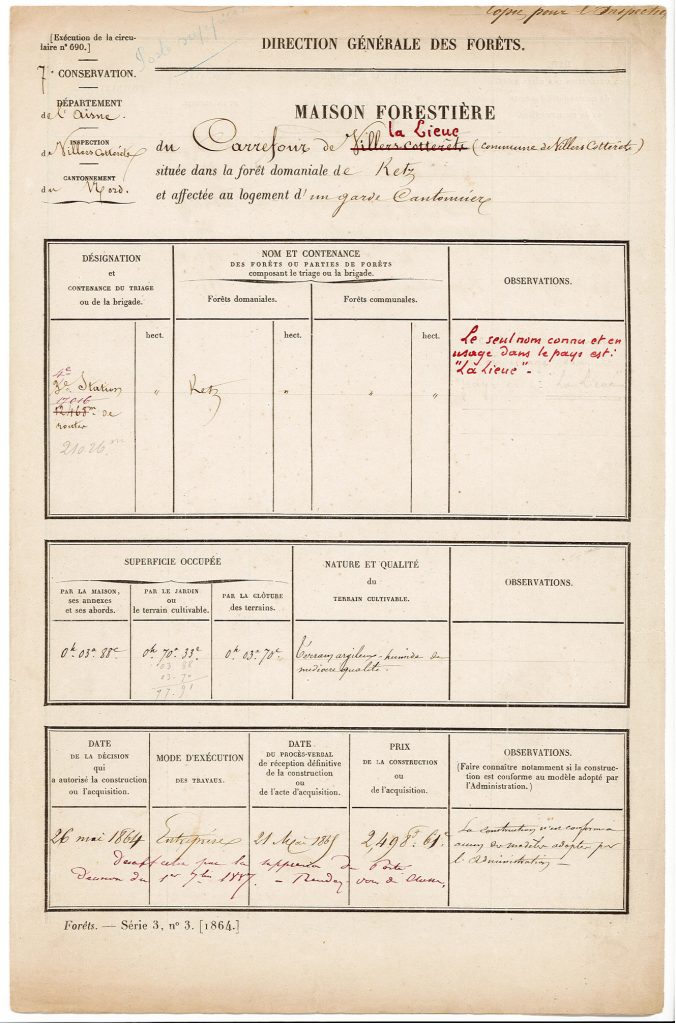 Copie pour l'Inspection
[Exécution de la circulaire n° 690.]
DIRECTION GÉNÉRALE DES FORÊTS.
7e CONSERVATION.
DÉPARTEMENT
de l'Aisne.
INSPECTION
de Villers Cotterêts
CANTONNEMENT
du Nord.
MAISON FORESTIÈRE
la Lieue
du Carrefour de Villers Cotterêts (commune de Villers Cotterêts)
située dans la forêt domaniale de Retz
et affectée au logement d'un garde Cantonnier
DÉSIGNATION
et
CONTENANCE DU TRIAGE
ou de la brigade.
NOM ET CONTENANCE
DES FORÊTS OU PARTIES DE FORÊTS
composant le triage ou la brigade.
Forêts domaniales.
Forêts communales.
OBSERVATIONS.
hect.
hect.
hect.
4e
3e Station
17016
12468m de
routes
21026m
"
Retz
"
"
"
Le seul nom connu et en
usage dans le pays est:
"La Lieue"-
SUPERFICIE OCCUPÉE
PAR LA MAISON,
ses annexes
et ses abords.
PAR LE JARDIN
ou
le terrain cultivable.
PAR LA CLÔTURE
des terrains.
NATURE ET QUALITÉ
du
TERRAIN CULTIVABLE.
OBSERVATIONS.
0h 03a 88c
0h 70a 33c
03 88
03 70
77 91
0h 03a 70c
Terrain argileux - humide de
médiocre qualité.
DATE
DE LA DÉCISION
qui
a autorisé la construction
ou l'acquisition.
MODE D'EXÉCUTION
DES TRAVAUX.
DATE
DU PROCÈS-VERBAL
de réception définitive
de la construction
ou
de l'acte d'acquisition.
PRIX
DE LA CONSTRUCTION
ou
de l'acquisition.
OBSERVATIONS.
(Faire connaître notamment si la construction est conforme au modèle adopté par l'Administration.)
26 mai 1864
Entreprise
21 Mai 1865
2,498f 61c
La construction n'est conforme à
aucun des modèles adoptés par
l'Administration -
Désaffectée par la suppression du Poste
Décision du 1er 7bre 1887. -
Forêts. — Série 3, n° 3. [1864.]